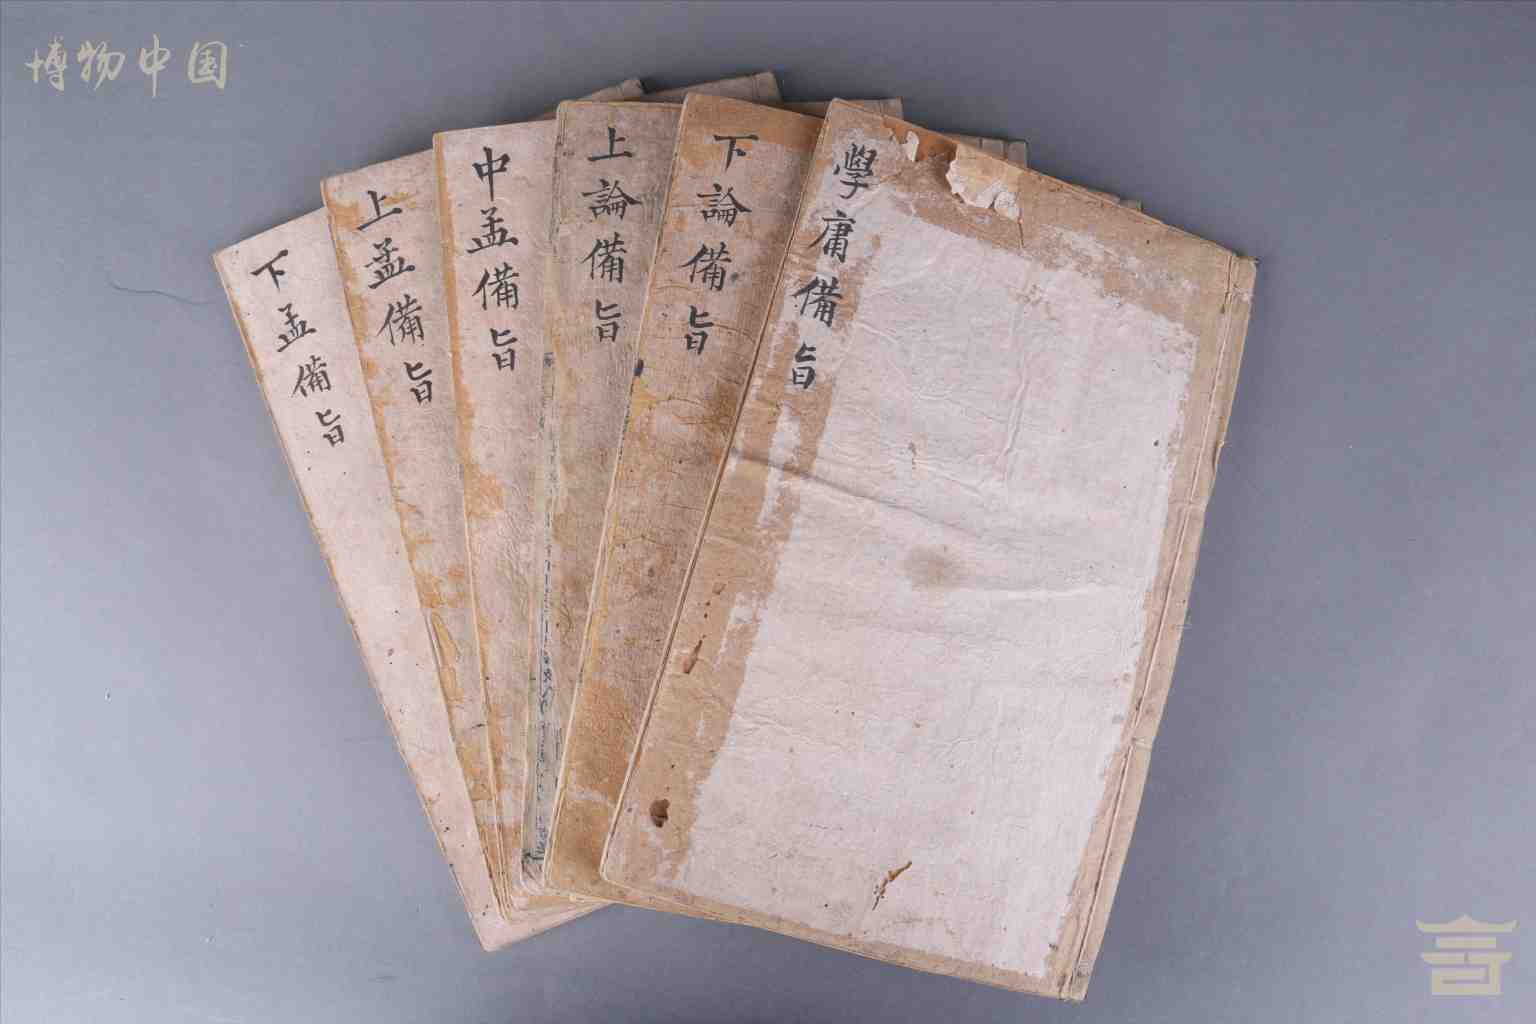 博物中国
學庸備旨
下論備旨
上論備旨
中孟備旨
上孟備旨
下孟備旨